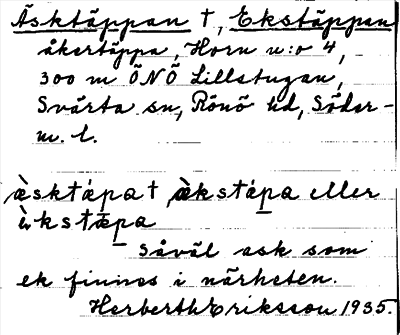 Äsktäppan †, Ekstäppan
åkertäppa, Horn n:o 4,
300 m ÖNÖ Lillstugan,
Svärta sn, Rönö hd, Söder-
m. l.
æ̀sktæ̀pa † æ̀kstæ̀pa eller
èkstæ̀pa
Såväl ask som
ek finnes i närheten.
Herberth Eriksson 1935.